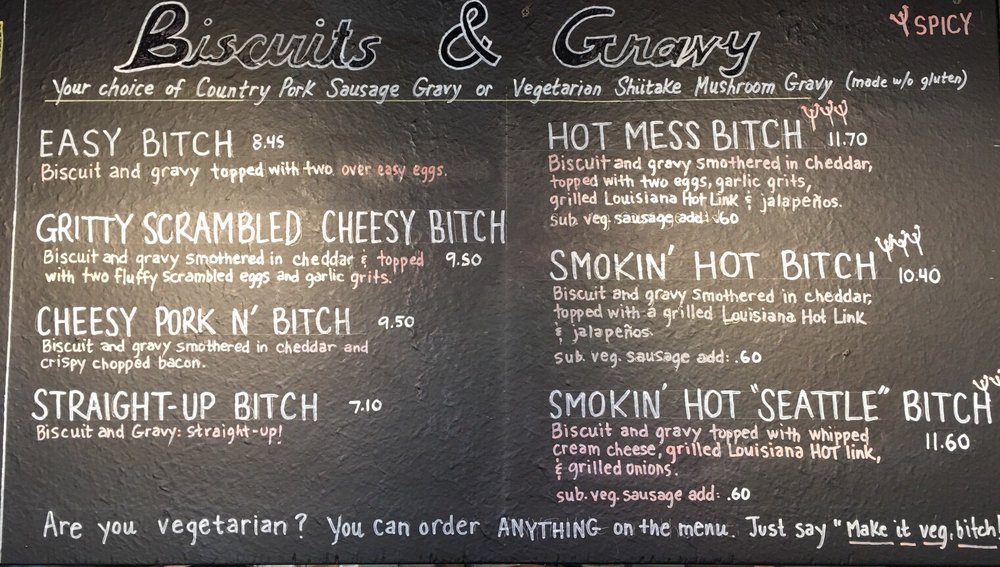 Biscuits & Gravy
SPICY
Your choice of Country Pork Sausage Gravy or Vegetarian Shiitake Mushroom Gravy (made w/o gluten)
EASY BITCH 8.45
Biscuit and gravy topped with two over easy eggs.
GRITTY SCRAMBLED CHEESY BITCH
Biscuit and gravy smothered in cheddar & topped 9.50
with two fluffy scrambled eggs and garlic grits.
CHEESY PORK N' BITCH 9.50
Biscuit and gravy smothered in cheddar and
crispy chopped bacon.
STRAIGHT-UP BITCH 7.10
Biscuit and Gravy: straight-up!
HOT MESS BITCH 11.70
Biscuit and gravy smothered in cheddar,
topped with two eggs, garlic grits,
grilled Louisiana Hot Link & jalapeños.
sub veg. sausage add: .60
SMOKIN' HOT BITCH 10.40
Biscuit and gravy smothered in cheddar,
topped with a grilled Louisiana Hot Link
& jalapeños.
sub. veg. sausage add: .60
SMOKIN' HOT "SEATTLE" BITCH
11.60
Biscuit and gravy topped with whipped
cream cheese, grilled Louisiana HOT link,
& grilled onions.
sub. veg. sausage add: .60
Are you vegetarian? You can order ANYTHING on the menu. Just say "Make it veg, bitch!